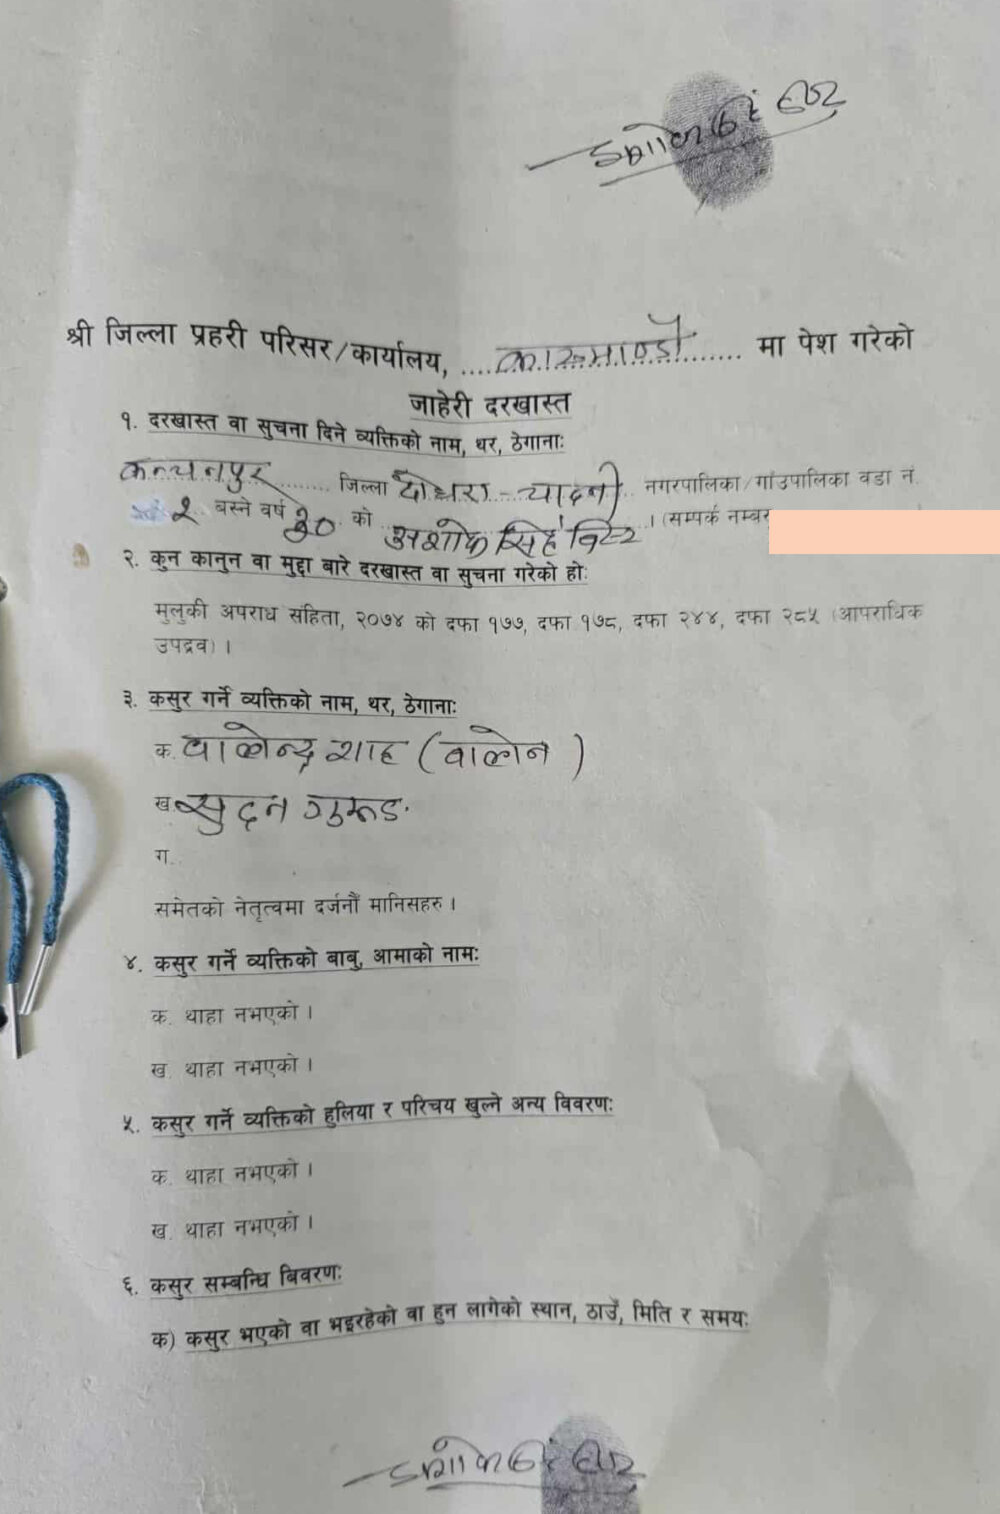 श्री जिल्ला प्रहरी परिसर/कार्यालय, ....काठमाण्डौ........ मा पेश गरेको
जाहेरी दरखास्त
१. दरखास्त वा सुचना दिने व्यक्तिको नाम, थर, ठेगानाः
कन्चनपुर........ जिल्ला दोधारा - चादनी नगरपालिका/गाउपालिका वडा नं.
२ बस्ने वर्ष ३० को अशोक सिहं विष्ट । (सम्पर्क नम्बर
२. कुन कानुन वा मुद्दा बारे दरखास्त वा सुचना गरेको होः
मुलुकी अपराध संहिता, २०७४ को दफा १७७, दफा १७८, दफा २४४, दफा २८५ (आपराधिक
उपद्रव) ।
३. कसुर गर्ने व्यक्तिको नाम, थर, ठेगानाः
क. वालेन्द्र शाह (वालेन)
ख. सुदन गुरुङ.
ग.
समेतको नेतृत्वमा दर्जनौं मानिसहरु ।
४. कसुर गर्ने व्यक्तिको बाबु, आमाको नामः
क. थाहा नभएको ।
ख. थाहा नभएको ।
५. कसुर गर्ने व्यक्तिको हुलिया र परिचय खुल्ने अन्य विवरणः
क. थाहा नभएको ।
ख. थाहा नभएको ।
६. कसुर सम्बन्धि बिवरणः
क) कसुर भएको वा भइरहेको वा हुन लागेको स्थान, ठाउँ, मिति र समयः